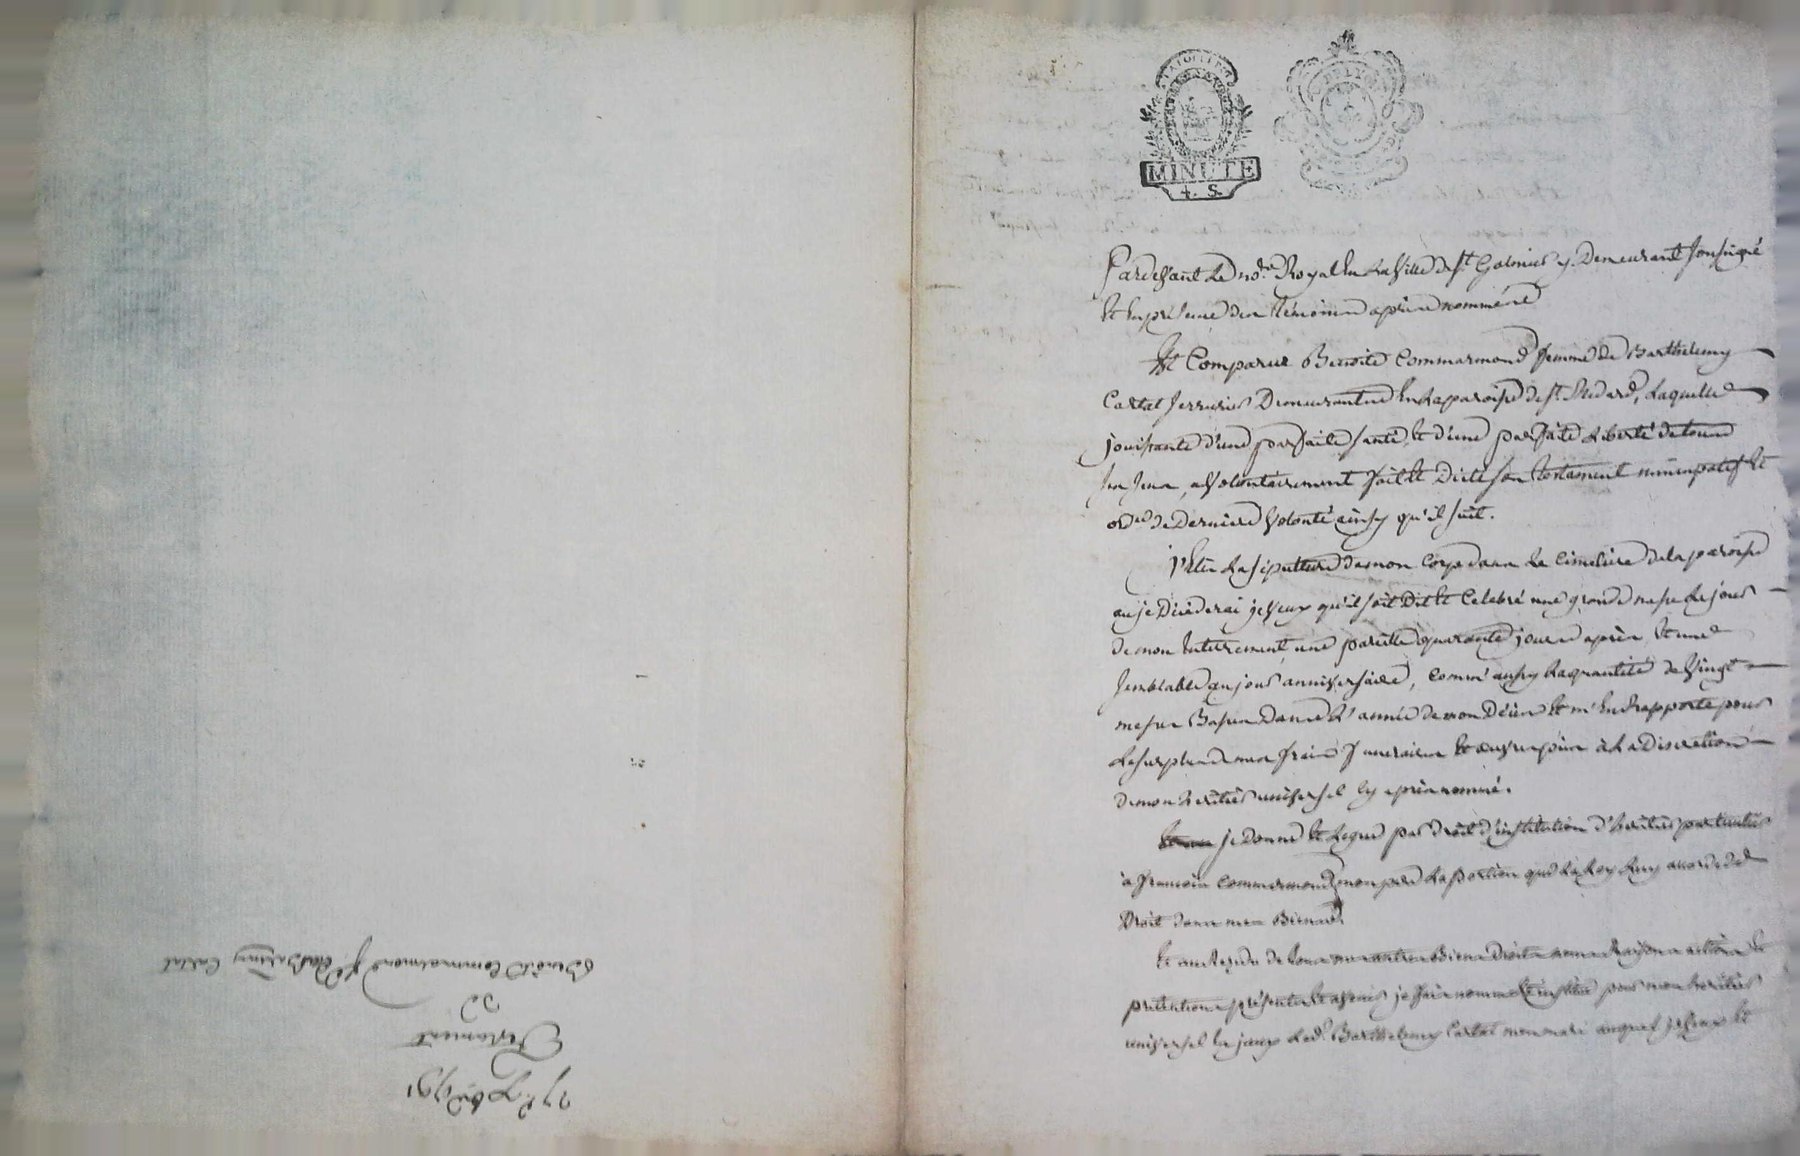 LA LOI ET LE ROI
MINUTE
4. S.
Pardevant Le no.re Royal En La Ville de St Galmier y Demeurant soussigné
Et En présence des témoins après nommés
Est Comparue Benoite Commarmond femme de Barthelemy
Cartal serrurier Demeurante En La paroisse de St. Medard, Laquelle
jouissante d'une parfaite santé, Et d'une parfaite Liberté de tous
ses sens, a volontairement fait Et Dicté son testament nuncupatif Et
ord.ce de Derniere volonté ainsy qu'il suit.
Elis La sépulture de mon corps dans Le cimetiere de la paroisse
ou je Décéderai je veux qu'il soit Dit Et Celebré une grande messe Le jour
de mon Enterrement, une pareille quarante jours après, Et une
semblable au jour anniversaire, comme aussy La quantité de vingt
messes Basses Dans L'année de mon Décès Et m'En Rapporte pour
Le surplus de mes frais funeraires Et œuvres pies à La Discretion
de mon heritier universel Cy après nommé.
je Donne Et Legue par droit d'institution d'héritier particulier
à françois Commarmond mon pere La portion que La Loy Luy accorde de
Droit dans mes Biens.
Et au Residu de tous mes autres Biens Droits noms Raisons actions Et
prétentions présents Et avenir je fais nomme Et institue pour mon héritier
universel Led. Barthelemy Cartal mon mari auquel je veux Et
27e 7bre 1791
Testament
de
Benoite Commarmond fe de Barthelemy Cartal